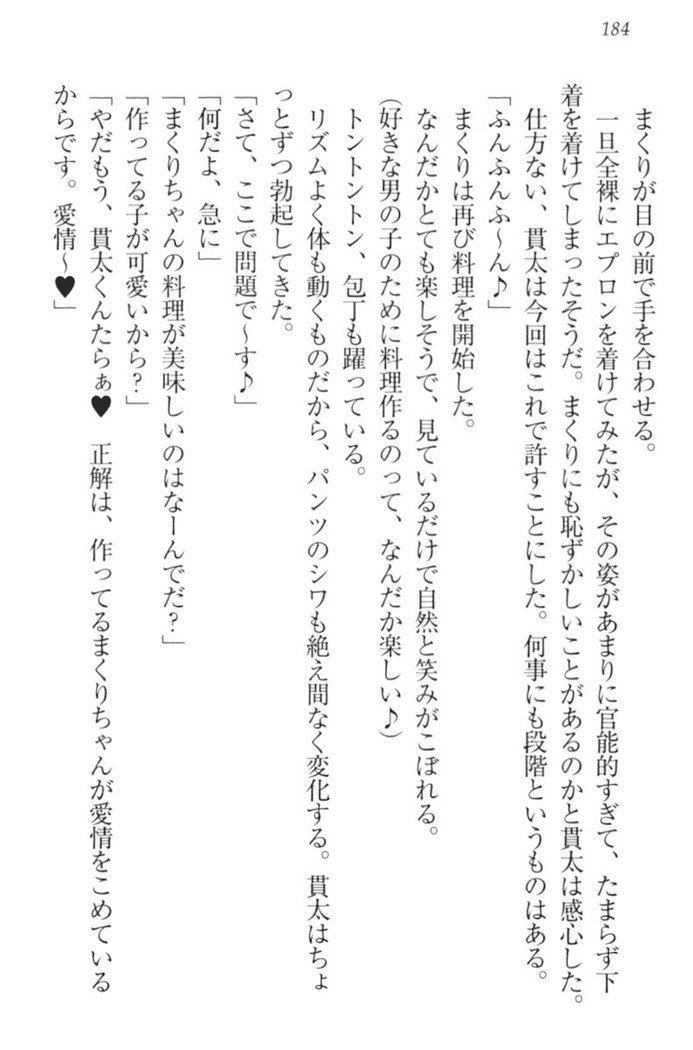 184
まくりが目の前で手を合わせる。
一旦全裸にエプロンを着けてみたが、その姿があまりに官能的すぎて、たまらず下
着を着けてしまったそうだ。まくりにも恥ずかしいことがあるのかと貫太は感心した。
仕方ない、貫太は今回はこれで許すことにした。何事にも段階というものはある。
「ふんふんふ〜ん♪」
まくりは再び料理を開始した。
なんだかとても楽しそうで、見ているだけで自然と笑みがこぼれる。
(好きな男の子のために料理作るのって、なんだか楽しい♪)
トントントン、包丁も躍っている。
リズムよく体も動くものだから、パンツのシワも絶え間なく変化する。貫太はちょ
っとずつ勃起してきた。
「さて、ここで問題で〜す♪」
「何だよ、急に」
「まくりちゃんの料理が美味しいのはなーんでだ?」
「作ってる子が可愛いから?」
「やだもう、貫太くんたらぁ♥　正解は、作ってるまくりちゃんが愛情をこめている
からです。愛情〜♥」